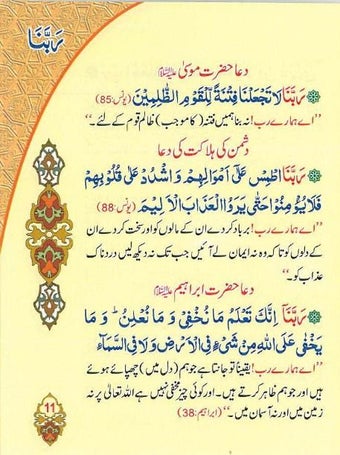 رَبَّنَا
دعا حضرت موسیٰ علیہ السلام
رَبَّنَا لَا تَجْعَلْنَا فِتْنَةً لِّلْقَوْمِ الظّٰلِمِيْنَ (یونس:85)
’’اے ہمارے رب! نہ بنا ہمیں فتنہ (کا موجب) ظالم قوم کے لئے۔‘‘
دشمن کی ہلاکت کی دعا
رَبَّنَا اطْمِسْ عَلٰٓى اَمْوَالِهِمْ وَ اشْدُدْ عَلٰى قُلُوْبِهِمْ
فَلَا يُؤْمِنُوْا حَتّٰى يَرَوُا الْعَذَابَ الْاَلِيْمَ (یونس:88)
’’اے ہمارے رب! برباد کر دے ان کے مالوں کو اور سخت کر دے ان
کے دلوں کو تاکہ وہ نہ ایمان لے آئیں جب تک نہ دیکھ لیں دردناک
عذاب کو۔‘‘
دعا حضرت ابراہیم علیہ السلام
رَبَّنَآ اِنَّكَ تَعْلَمُ مَا نُخْفِىْ وَ مَا نُعْلِنُ ؕ وَ مَا
يَخْفٰى عَلَى اللّٰهِ مِنْ شَىْءٍ فِى الْاَرْضِ وَ لَا فِى السَّمَآءِ
’’اے ہمارے رب! یقیناً تو جانتا ہے جو ہم (دل میں) چھپائے ہوئے
ہیں اور جو ہم ظاہر کرتے ہیں۔ اور کوئی چیز مخفی نہیں ہے اللہ تعالیٰ پر نہ
زمین میں اور نہ آسمان میں۔‘‘ (ابراہیم:38)
11